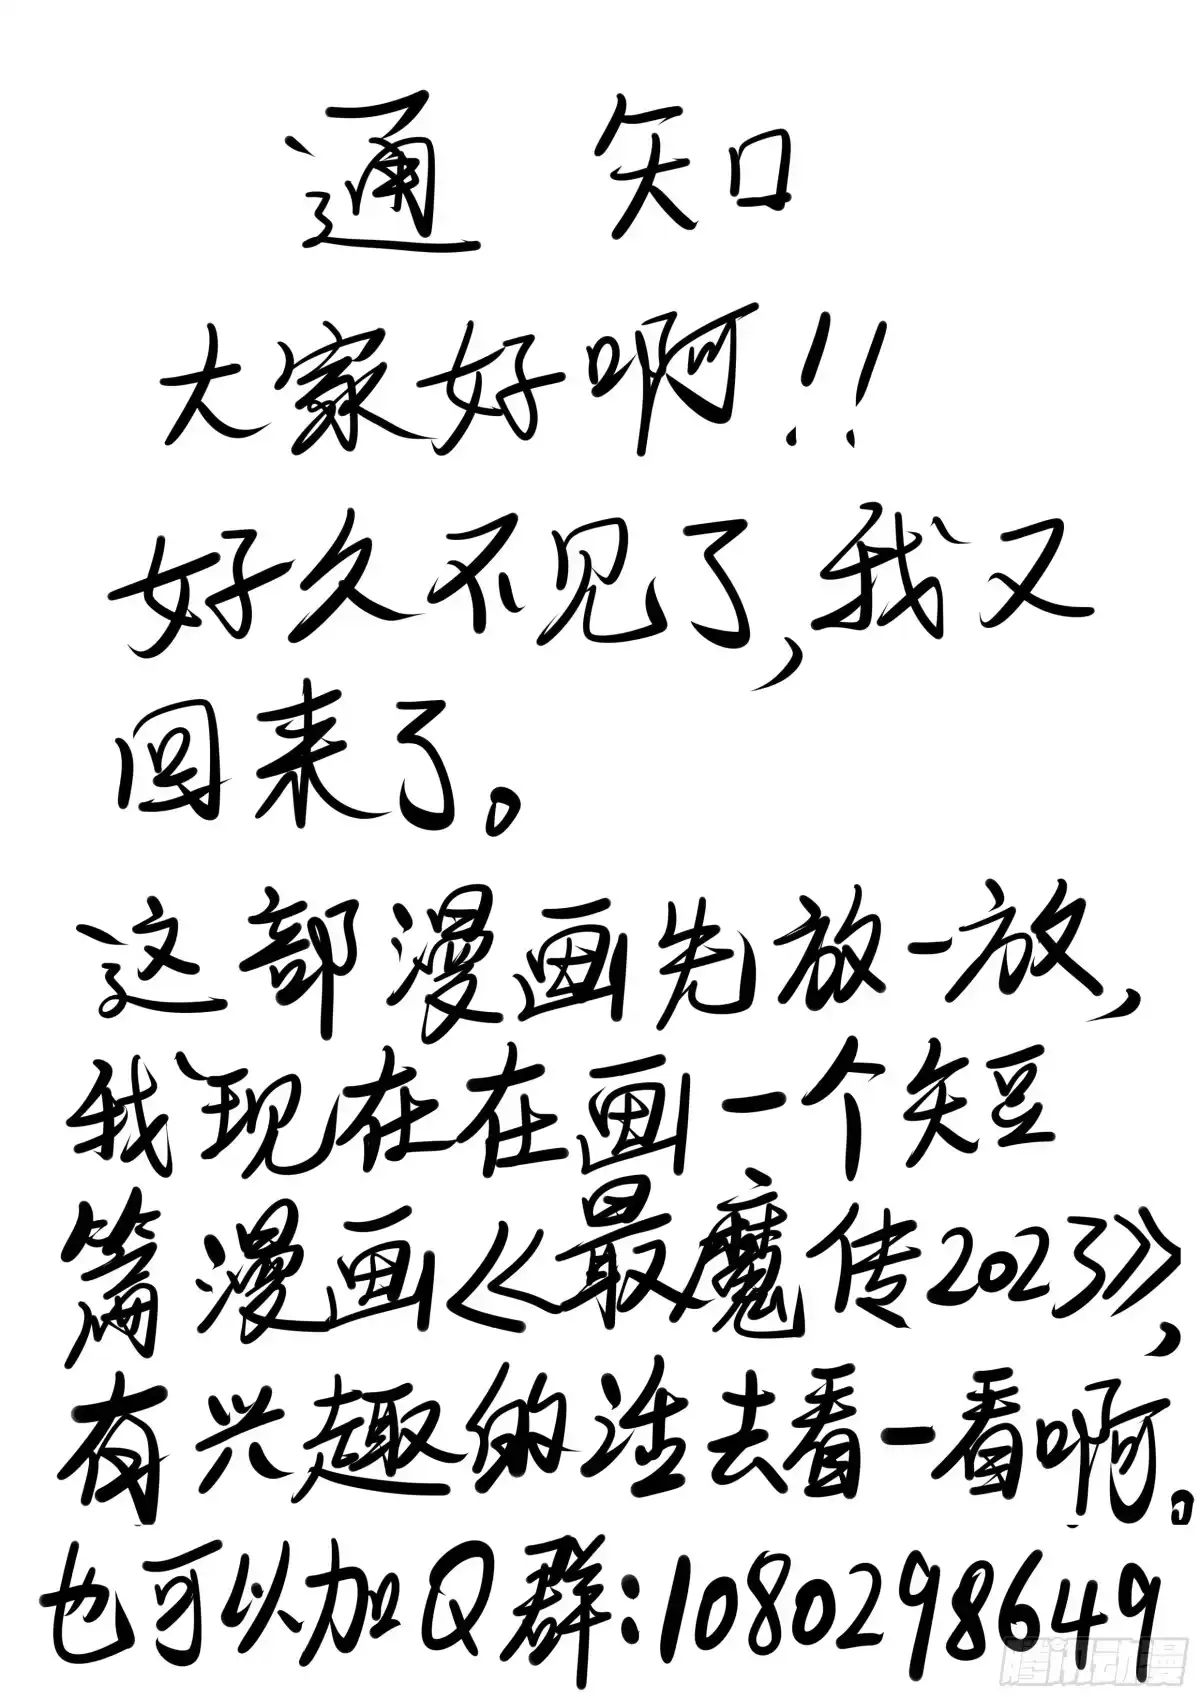 通知
大家好啊!!
好久不见了,我又
回来了。
这部漫画先放一放,
我现在在画一个短
篇漫画《最魔传2023》,
有兴趣的话去看一看啊。
也可以加Q群:1080298649
腾讯动漫